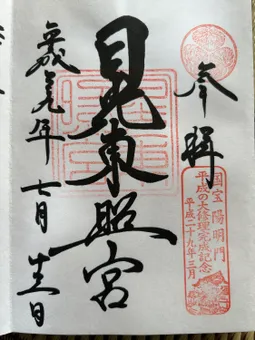 奉拝
国宝陽明門
平成の大修理完成記念
平成二十九年三月
日光東照宮
平成廿九年 七月 日